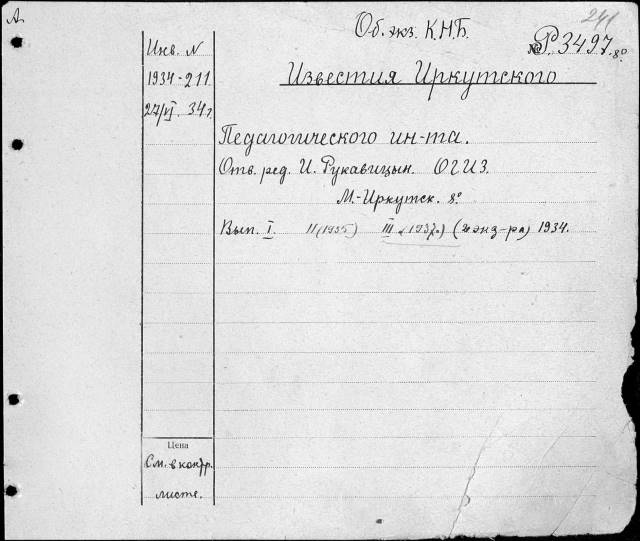 А
241
Об. экз. К.Н.Б.
№ Р. 3497. 8°
Инв. N
1934-211
27/VI. 34 г.
Известия Иркутского
Педагогического ин-та.
Отв. ред. И. Рукавицын. ОГИЗ.
М.-Иркутск. 8°
Вып. I. II (1935) III (1937) 1934.
Цена
См. в контр.
листе.